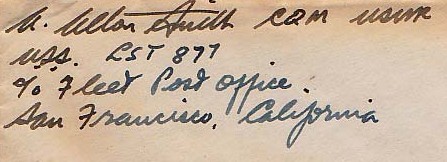 A. Elton Smith CQM USNR
USS. LST 877
c/o Fleet Post office.
San Francisco, California